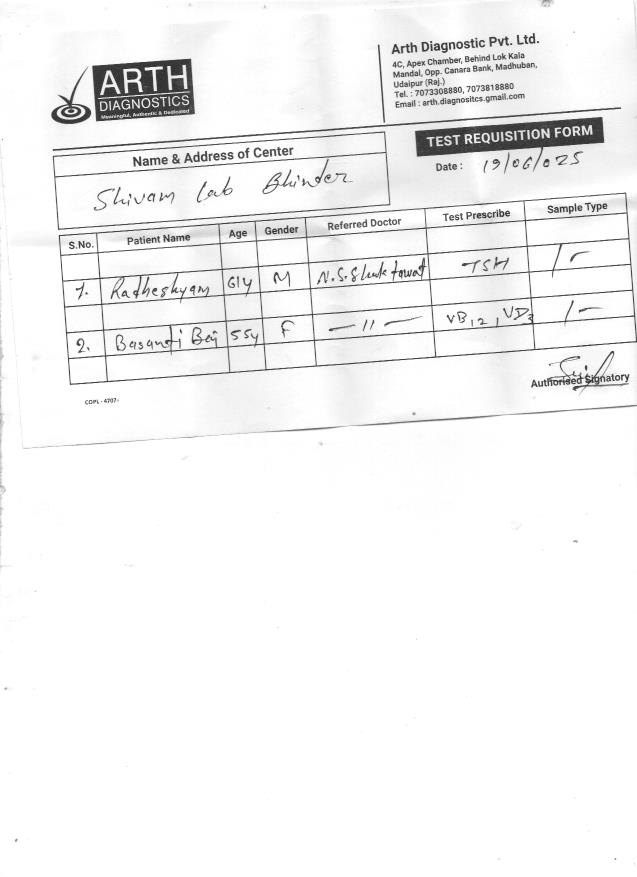 ARTH
DIAGNOSTICS
Meaningful, Authentic & Dedicated
Arth Diagnostic Pvt. Ltd.
4C, Apex Chamber, Behind Lok Kala
Mandal, Opp. Canara Bank, Madhuban,
Udaipur (Raj.)
Tel. : 7073308880, 7073818880
Email : arth.diagnositcs.gmail.com
TEST REQUISITION FORM
Name & Address of Center
Date : 19/06/025
Shivam Lab Bhinder
S.No. Patient Name Age Gender Referred Doctor Test Prescribe Sample Type
1. Radheshyam 61y M N.S. Shaktawat TSH 1-
2. Basanti Bai 55y F -11- VB12, VD3 1-
Authorised Signatory
COPL - 4707-